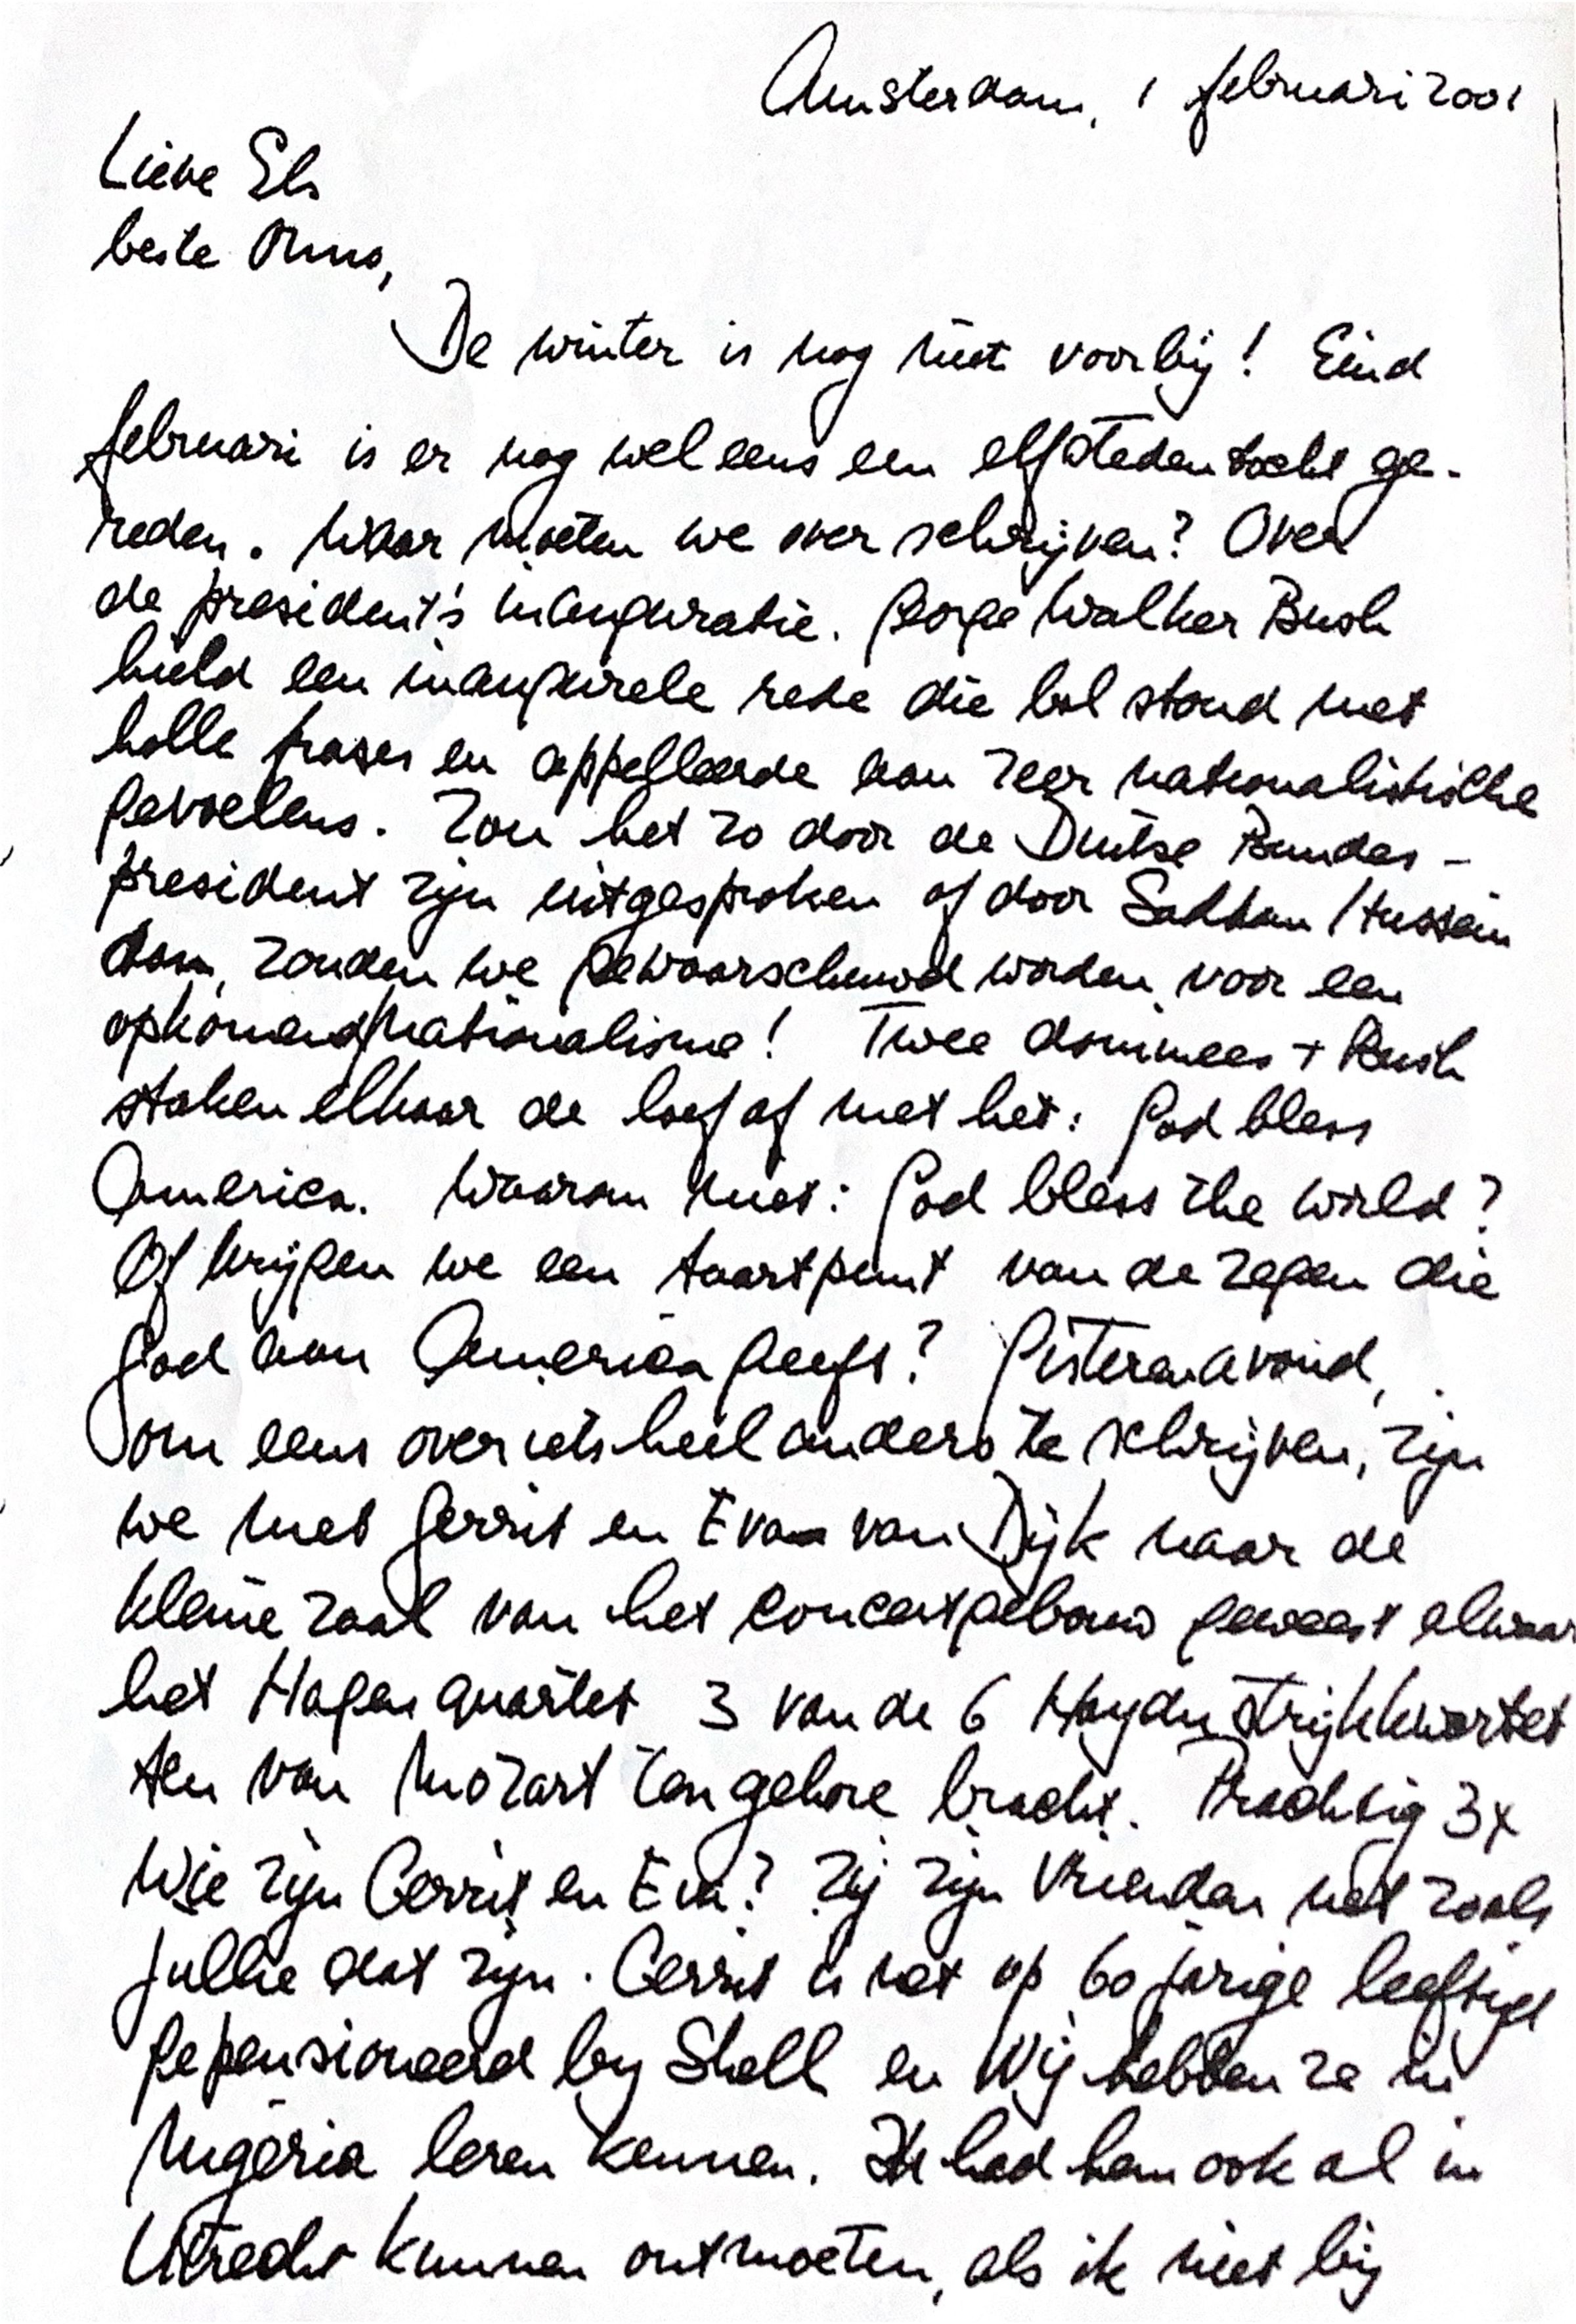 Amsterdam, 1 februari 2001
Lieve Els
beste Onno,
De winter is nog niet voorbij! Eind
februari is er nog wel eens een elfstedentocht ge-
reden. Waar moeten we over schrijven? Over
de president's inauguratie. George Walker Bush
hield een inaugurele rede die bol stond met
holle frases en appelleerde aan zeer nationalistische
gevoelens. Zou het zo door de Duitse Bundes-
president zijn uitgesproken of door Saddam Hussein
dan, zouden we gewaarschuwd worden voor een
opkomend nationalisme! Twee dominees + Bush
staken elkaar de loef af met het: God bless
America. Waarom niet: God bless the world?
Of krijgen we een taartpunt van de zegen die
God aan America geeft? Gisterenavond,
om eens over iets heel anders te schrijven, zijn
we met Gerrit en Eva van Dijk naar de
kleine zaal van het concertgebouw geweest alwaar
het Hagen quartet 3 van de 6 Haydn strijkkwartet
ten van Mozart ten gehore bracht. Prachtig 3x
Wie zijn Gerrit en Eva? Zij zijn vrienden net zoals
jullie dat zijn. Gerrit is net op 60 jarige leeftijd
gepensioneerd by Shell en wij hebben ze in
Nigeria leren kennen. Ik had hem ook al in
Utrecht kunnen ontmoeten, als ik niet bij